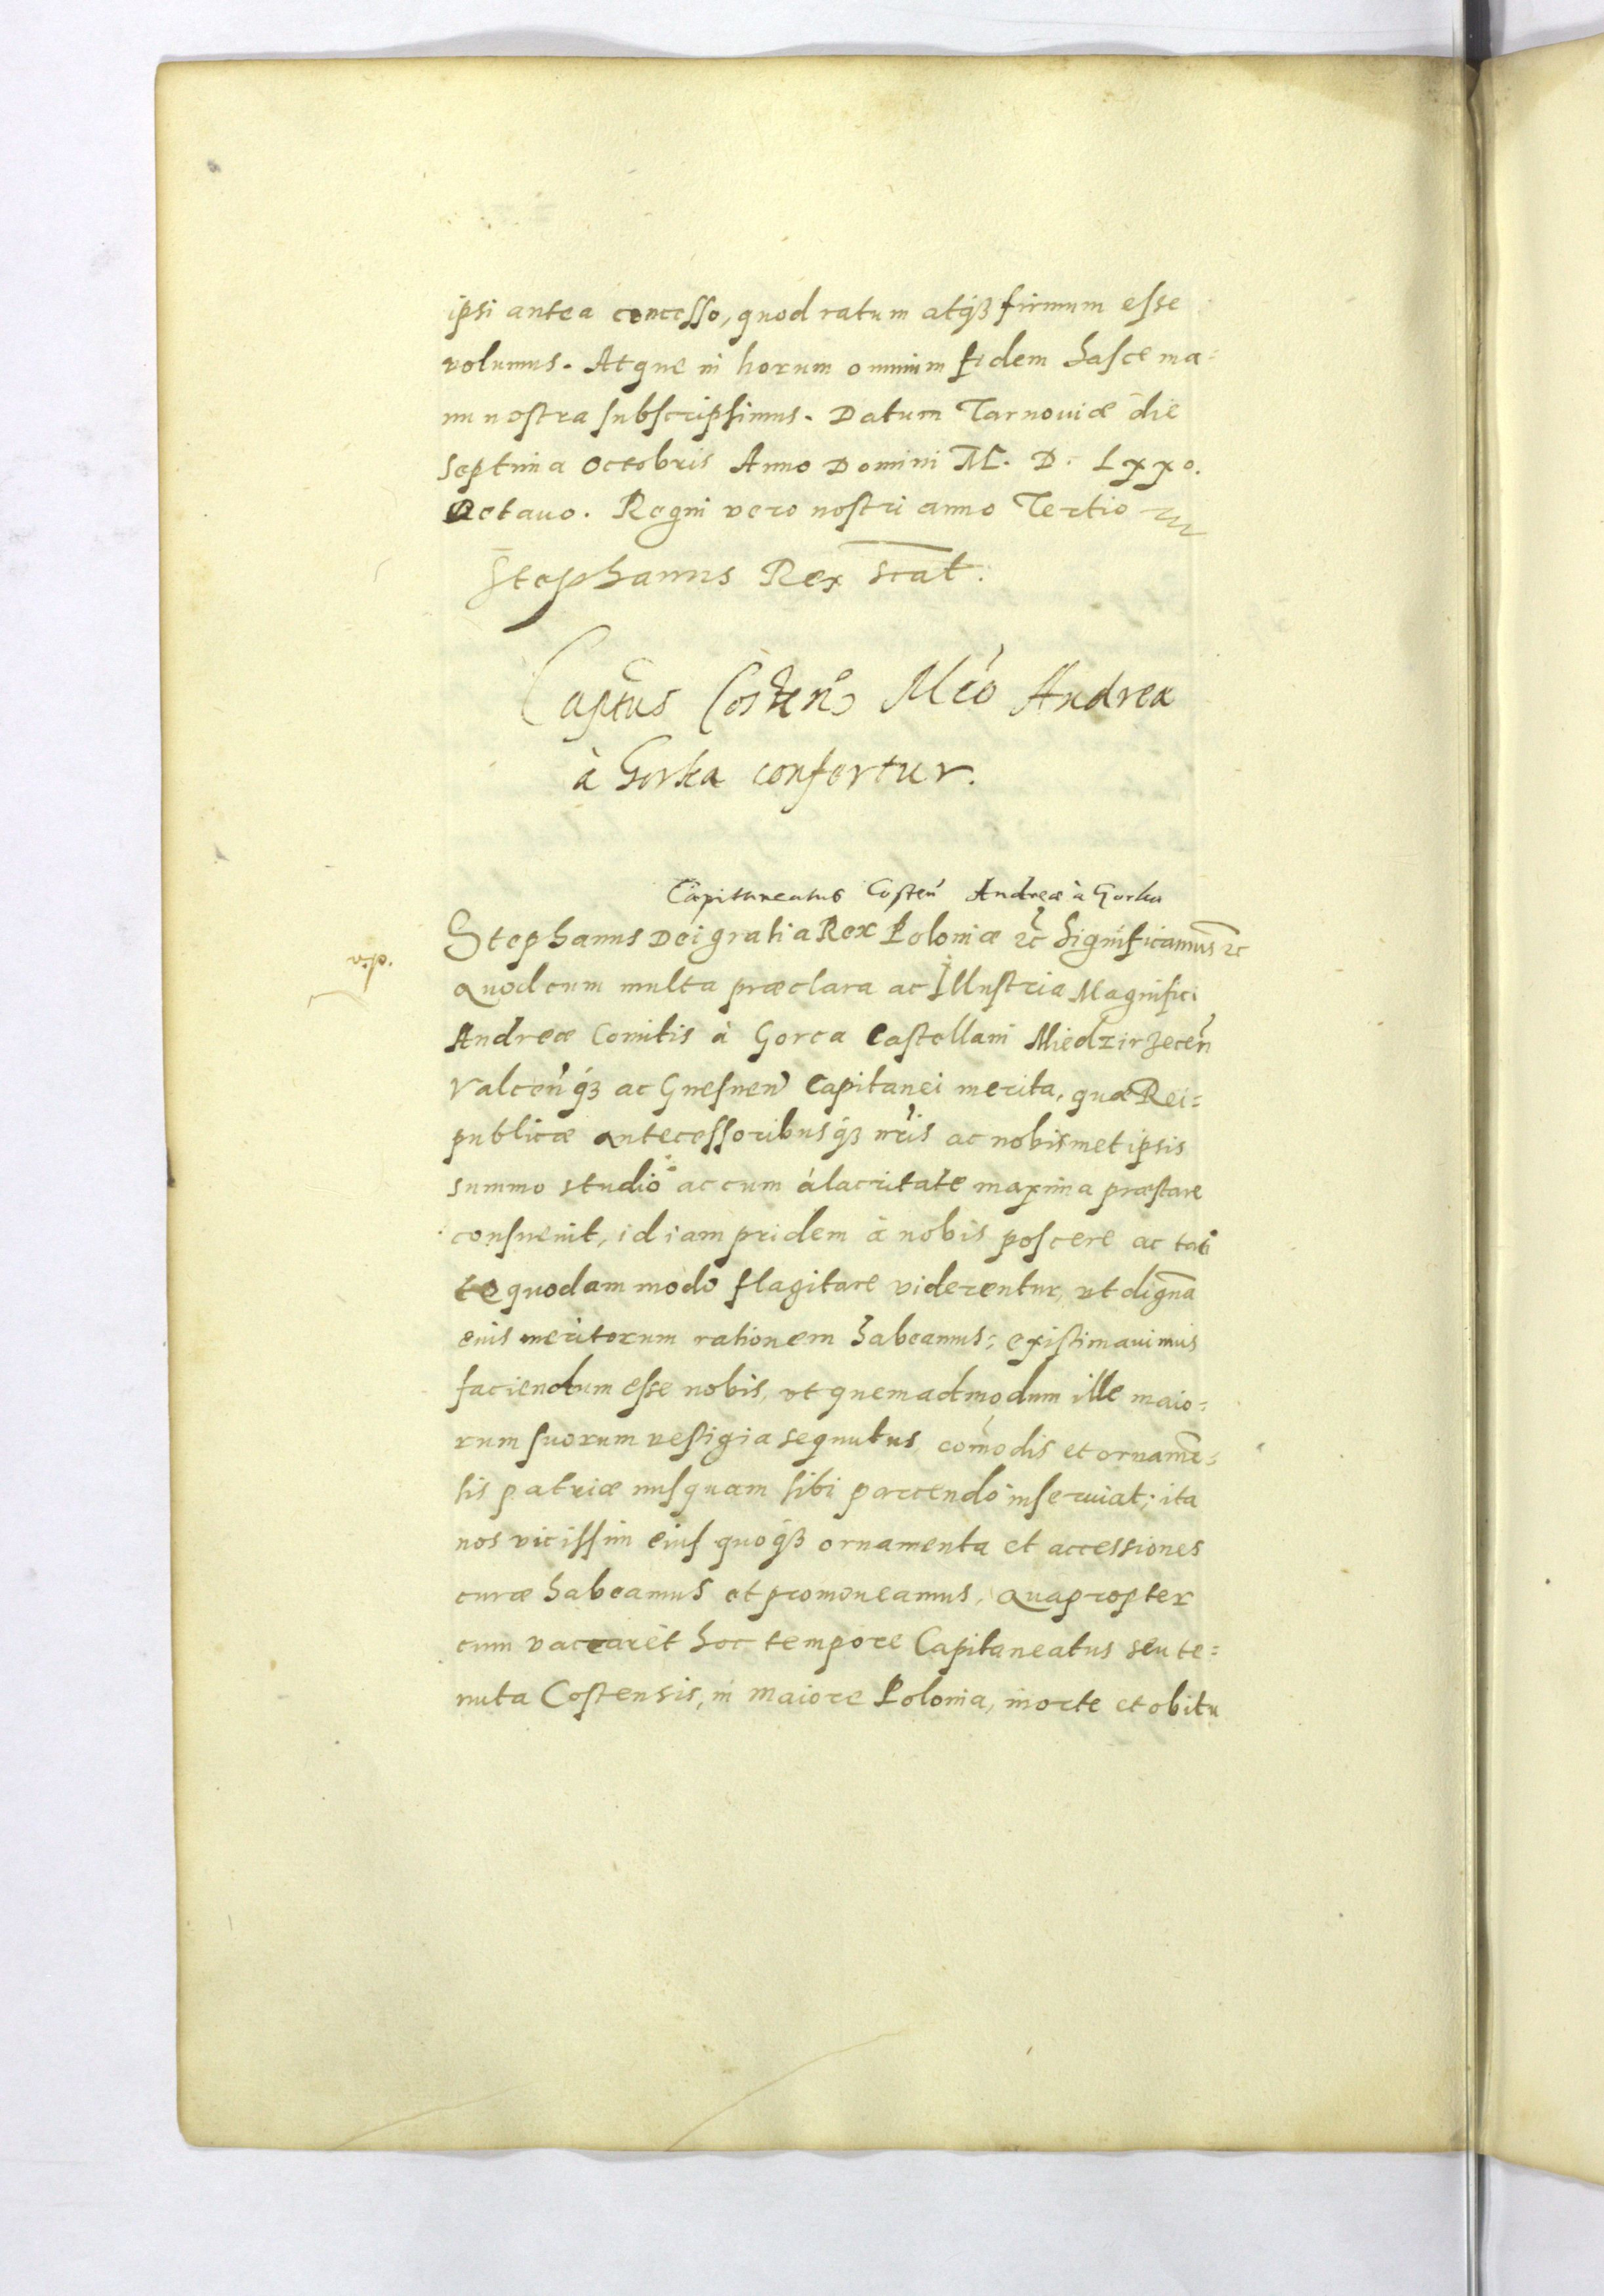 ipsi antea concesso, quod ratum atq₃ firmum esse
volumus. Atque in horum omnium fidem hasce ma=
nu nostra subscripsimus. Datum Tarnouiæ die
septima Octobris Anno Domini M. D. Lxxo.
Octauo. Regni vero nostri anno Tertio
Stephanus Rex scat.
Captus Costen Mco Andrea
à Gorka confertur.
Capitaneatus Costen Andreæ à Gorka
Stephanus Dei gratia Rex Poloniæ etc Significamus etc
quod cum multa præclara ac Illustria Magnifici
Andreæ Comitis à Gorca Castellani Miedzirzecen
Valcen q₃ ac Gnesnen Capitanei merita, quæ Rei=
publicæ antecessoribusq₃ nris ac nobismet ipsis
summo studio ac cum alacritate maxima præstare
consueuit, id iam pridem à nobis poscere ac taci
te quodam modo flagitare viderentur, vt dignā
eius meritorum rationem habeamus; existimauimus
faciendum esse nobis, vt quemadmodum ille maio=
rum suorum vestigia sequutus comodis et ornamē=
tis patriæ nusquam sibi parcendo inseruiat; ita
nos vicissim eius quoq₃ ornamenta et accessiones
curæ habeamus et promoueamus, Quapropter
cum vaccaret hoc tempore Capitaneatus seu te=
nuta Costensis, in Maiore Polonia, morte et obitu